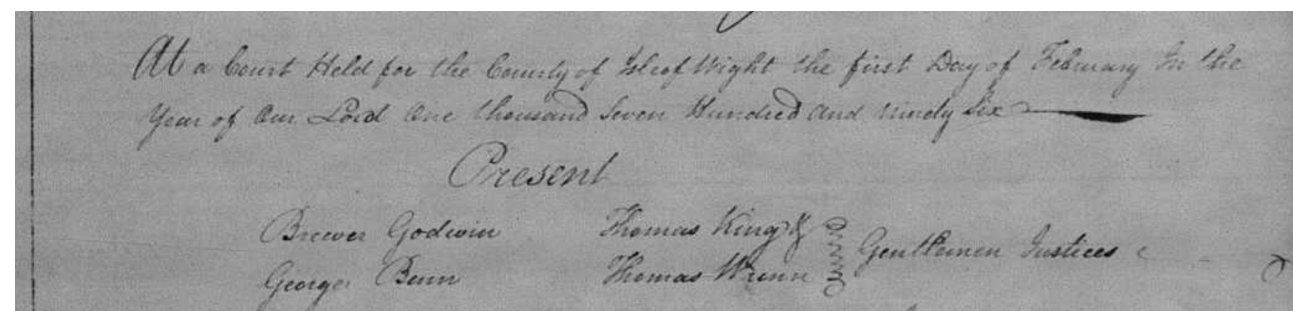 At a Court Held for the County of Isle of Wight the first Day of February In the
Year of Our Lord One thousand Seven Hundred and Ninety Six
Present
Brewer Godwin Thomas King &
George Benn Thomas Wrenn Gentlemen Justices